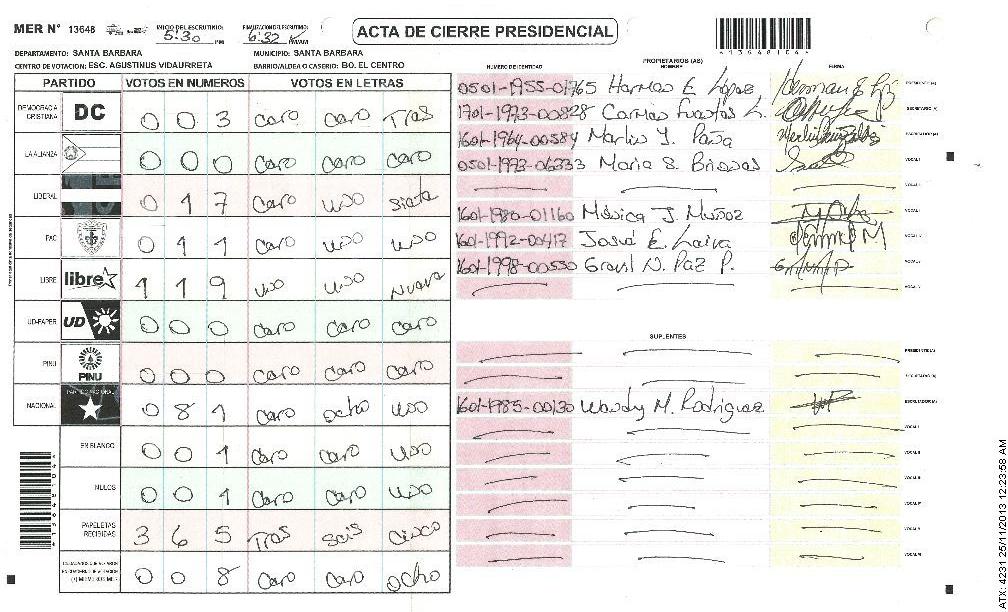 MER N° 13648 INICIO DEL ESCRUTINIO: 5:30 PM FINALIZACION DEL ESCRUTINIO: 6:32 PM/AM ACTA DE CIERRE PRESIDENCIAL
DEPARTAMENTO: SANTA BARBARA MUNICIPIO: SANTA BARBARA
CENTRO DE VOTACION: ESC. AGUSTINUS VIDAURRETA BARRIO/ALDEA O CASERIO: BO. EL CENTRO
PARTIDO VOTOS EN NUMEROS VOTOS EN LETRAS
DEMOCRACIA CRISTIANA DC 0 0 3 Cero Cero Tres
LA ALIANZA 0 0 0 Cero Cero Cero
LIBERAL 0 1 7 Cero Uno Siete
PAC 0 1 1 Cero Uno Uno
LIBRE libre 1 1 9 Uno Uno Nueve
UD-FAPER UD 0 0 0 Cero Cero Cero
PINU PINU 0 0 0 Cero Cero Cero
NACIONAL PARTIDO NACIONAL 0 8 1 Cero Ocho Uno
EN BLANCO 0 0 1 Cero Cero Uno
NULOS 0 0 1 Cero Cero Uno
PAPELETAS RECIBIDAS 3 6 5 Tres Seis Cinco
0 0 8 Cero Cero Ocho
PROPIETARIOS (AS)
NUMERO DE IDENTIDAD NOMBRE FIRMA
0501-1955-01765 Hermes E. López PRESIDENTE (A)
1701-1973-00828 Carmen Fuentes L. SECRETARIO (A)
1601-1964-00584 Marlin Y. Peña ESCRUTADOR (A)
0501-1973-06333 Maria S. VOCAL I
VOCAL II
1601-1980-01160 Mónica J. Muñoz
1601-1992-00417 José E. Leiva
1601-1998-00530 N. Paz P.
SUPLENTES
PRESIDENTE (A)
SECRETARIO (A)
1601-1985-00130 Wendy M. Rodriguez ESCRUTADOR (A)
VOCAL I
VOCAL II
VOCAL III
VOCAL IV
VOCAL V
VOCAL VI
ATX: 4231 25/11/2013 12:23:58 AM